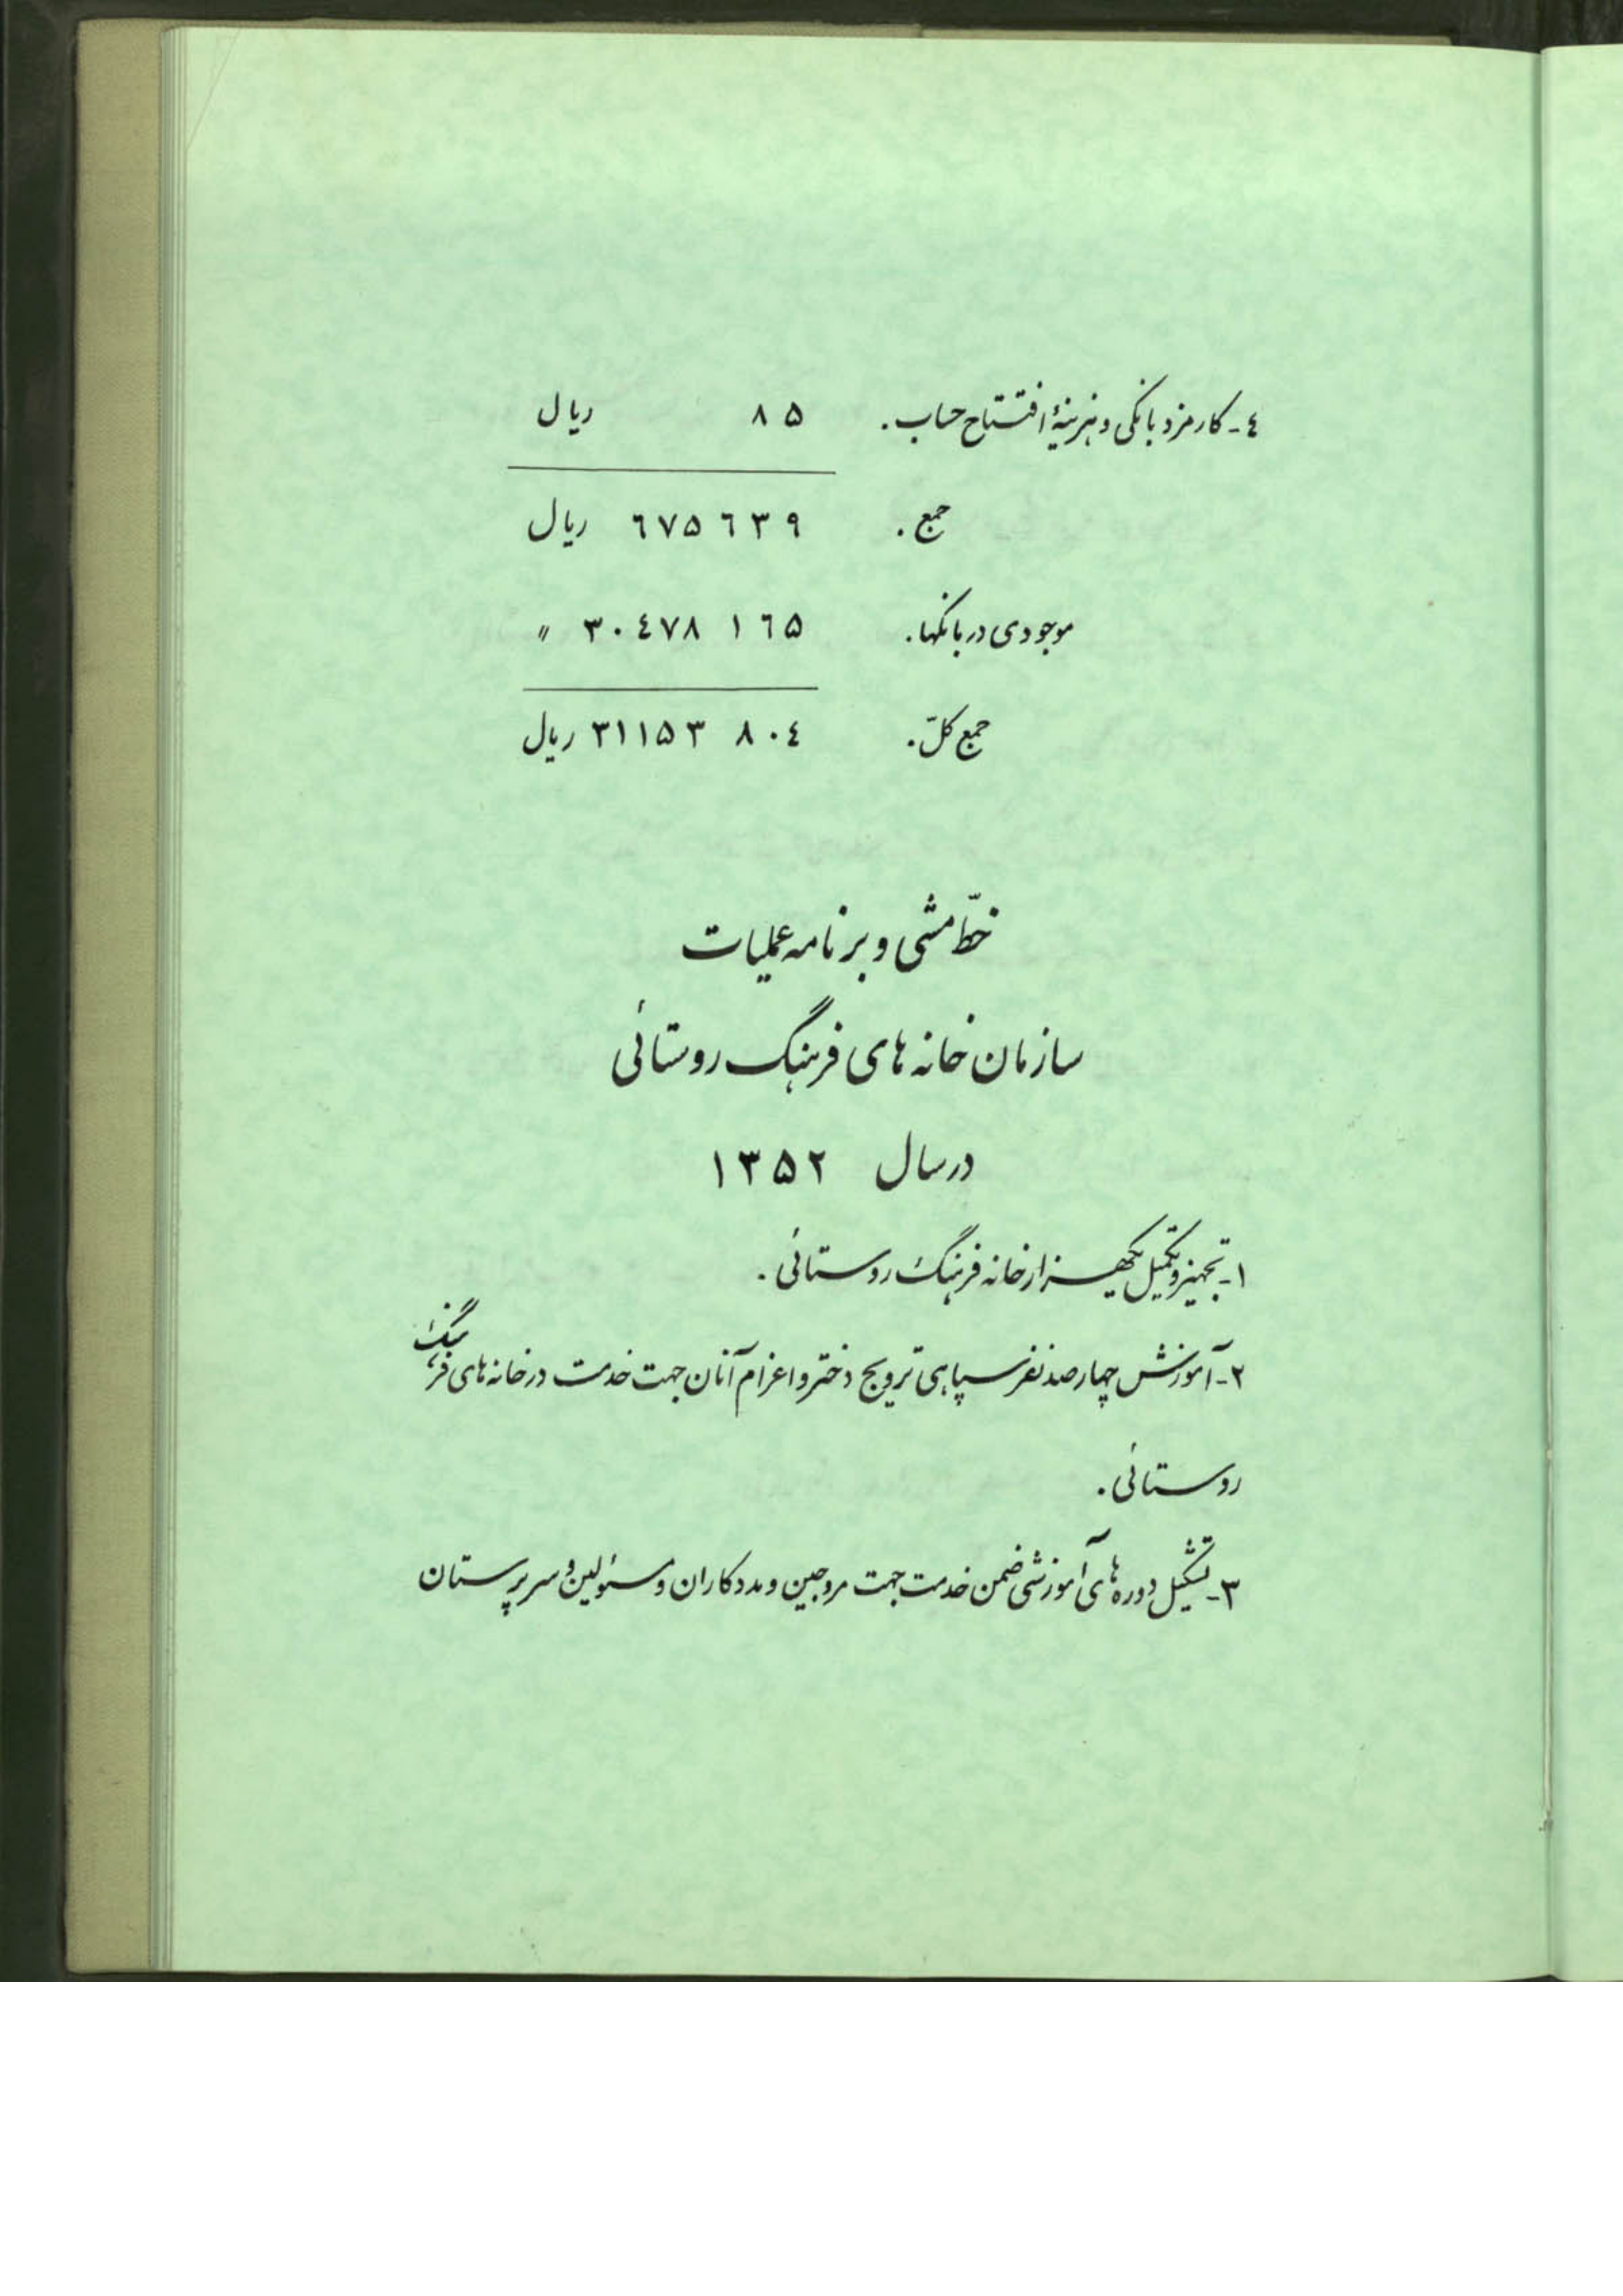 ٤- کارمزد بانکی و هزینهٔ افتتاح حساب. ۸۵ ریال
جمع. ٦۷۵٦۳۹ ریال
موجودی در بانکها. ۳۰٤۷۸۱٦۵ "
جمع کلّ. ۳۱۱۵۳۸۰٤ ریال
خطّ مشی و برنامه عملیات
سازمان خانه های فرهنگ روستائی
در سال ۱۳۵۲
۱- تجهیز و تکمیل یکهزار خانه فرهنگ روستائی.
۲- آموزش چهارصد نفر سپاهی ترویج دختر و اعزام آنان جهت خدمت در خانه های فرهنگ
روستائی.
۳- تشکیل دوره های آموزشی ضمن خدمت جهت مروجین و مددکاران و مسئولین و سرپرستان